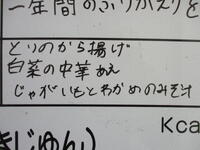 一年間のふりかえりを
とりのから揚げ
白菜の中華あえ
じゃがいもとわかめのみそ汁
Kca
きじゅん)